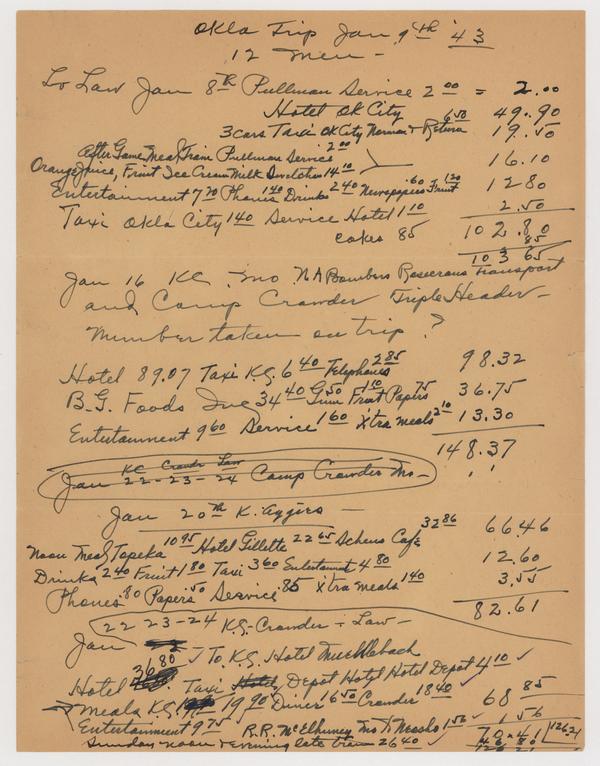 Okla Trip Jan 9th '43
12 Men -
To Law Jan 8th Pullman Service 2 00 = 2.00
Hotel Ok City 49.90
3 cars Taxi Ok City Norman & Return 6 50 19.50
After Game Meal Train Pullman Service 2 00
Orange Juice, Fruit Ice Cream Milk 14 10 16.10
Entertainment 7 20 Phones 1 40 Drinks 2 40 Newspapers .60 Fruit 1 20 12 80
Taxi Okla City 1 40 Service Hotel 1 10 2.50
102.80
cakes 85 85
103 65
Jan 16 KC. Mo. N A Bombers Rosecrans Transport
and Camp Crowder Triple Header -
Number taken on trip ?
Hotel 89.07 Taxi K.C. 6 40 Telephones 2 85 98.32
B.G. Foods Inc 34 40 Gum .50 Fruit 1 10 Papers 75 36.75
Entertainment 9 60 Service 1 60 Xtra meals 2 10 13.30
148.37
KC Crowder Law
Jan 22-23-24 Camp Crowder Mo -
Jan 20th K. Aggies -
Noon Meal Topeka 10 95 Hotel Gillette 22 65 Scheus Cafe 32 86 66.46
Drinks 2 40 Fruit 1 80 Taxi 3 60 Entertainment 4 80 12.60
Phones .80 Papers .50 Service 85 Xtra meals 1 40 3.55
82.61
22 23-24 K.C. - Crowder - Law -
Jan To K.C. Hotel Muehlebach
Hotel 36 80 Taxi Depot Hotel Hotel Depot 4 10
Meals KC 19 90 Diner 16 50 Crowder 18 40 68 85
Entertainment 9 75 R.R. McElhuney Mo To Neosho 1 56 1 56
Sunday noon & evening late train 26 40 70.41